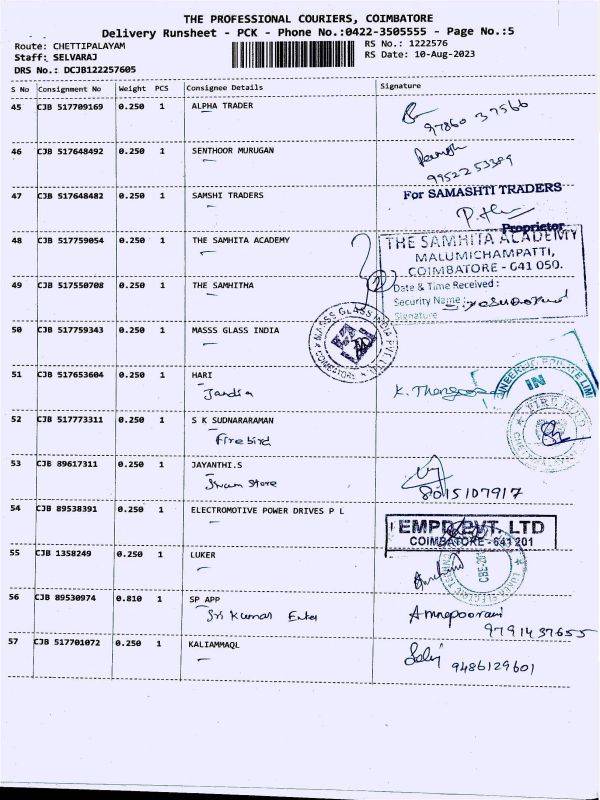 THE PROFESSIONAL COURIERS, COIMBATORE
Delivery Runsheet - PCK - Phone No.:0422-3505555 - Page No.:5
Route: CHETTIPALAYAM
RS No.: 1222576
Staff: SELVARAJ
RS Date: 10-Aug-2023
DRS No.: DCJB122257605
S No Consignment No Weight PCS Consignee Details Signature
45 CJB 517709169 0.250 1 ALPHA TRADER
97860 37566
46 CJB 517648492 0.250 1 SENTHOOR MURUGAN
9952253389
47 CJB 517648482 0.250 1 SAMSHI TRADERS
For SAMASHTI TRADERS
Proprietor
48 CJB 517759054 0.250 1 THE SAMHITA ACADEMY
THE SAMHITA ACADEMY
MALUMICHAMPATTI,
COIMBATORE - 641 050.
49 CJB 517550708 0.250 1 THE SAMHITHA
Date & Time Received :
Security Name :
Signature
50 CJB 517759343 0.250 1 MASSS GLASS INDIA
MASSS GLASS INDIA PVT LTD
51 CJB 517653604 0.250 1 HARI
K. Thanga
IN
52 CJB 517773311 0.250 1 S K SUDNARARAMAN
Firebird
FIRE BIRD
53 CJB 89617311 0.250 1 JAYANTHI.S
Store
8015107917
54 CJB 89538391 0.250 1 ELECTROMOTIVE POWER DRIVES P L
EMPD PVT. LTD
COIMBATORE - 641 201
55 CJB 1358249 0.250 1 LUKER
56 CJB 89530974 0.810 1 SP APP
Sri Kumar Enter
Annapoorani
9791437655
57 CJB 517701072 0.250 1 KALIAMMAQL
9486129601